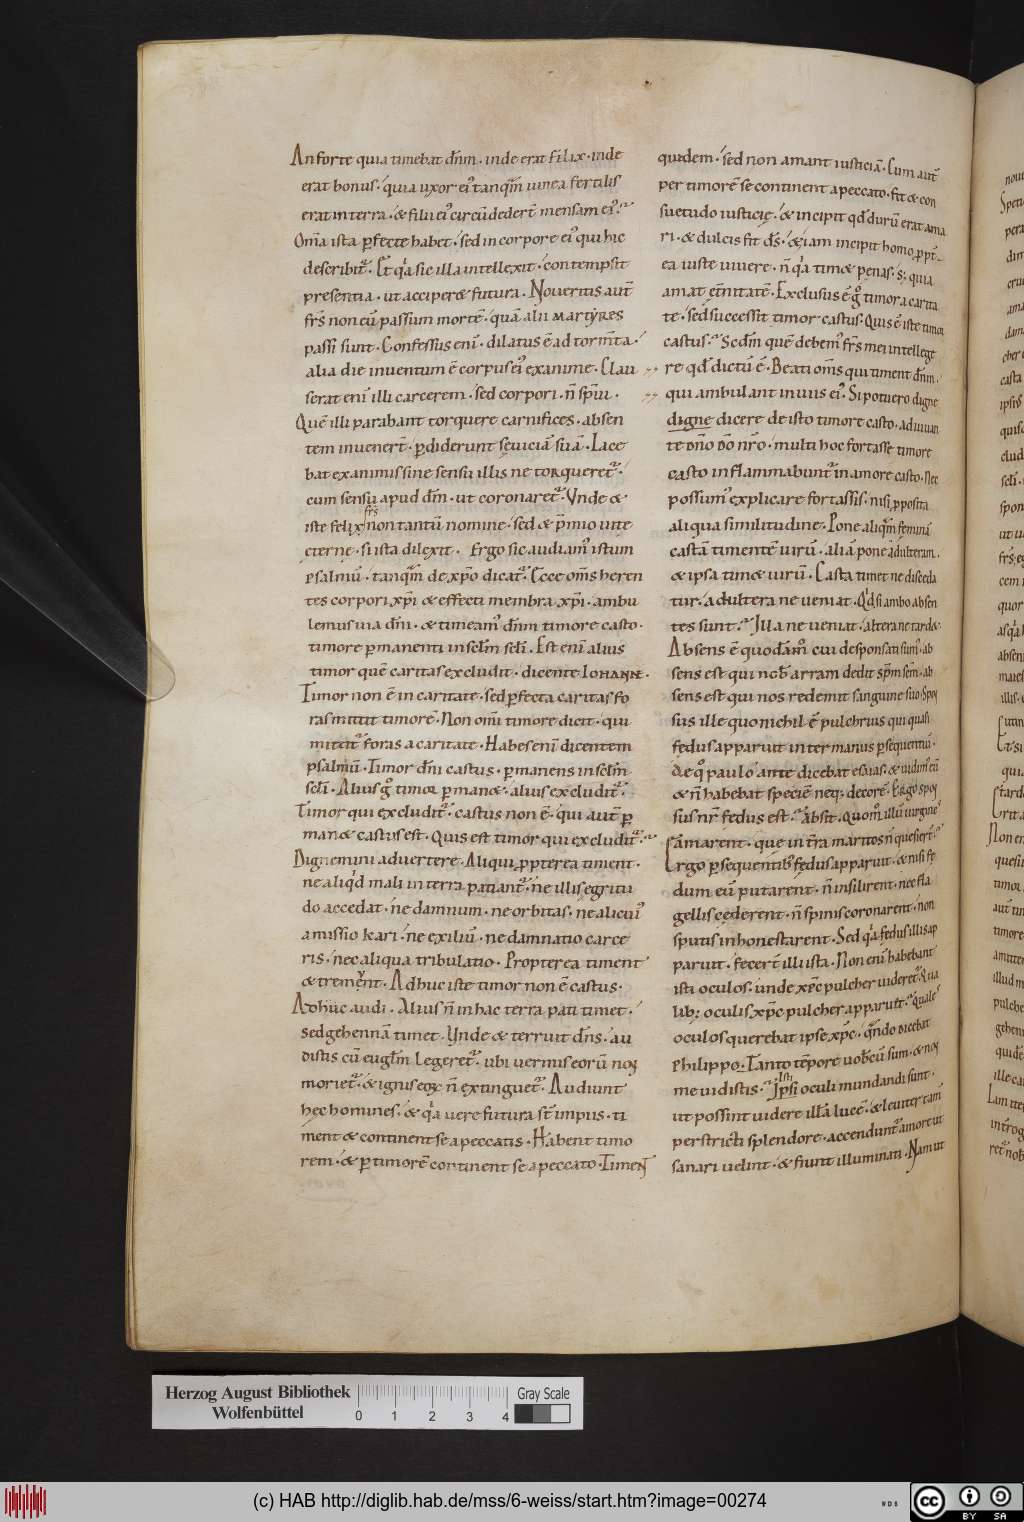 An forte quia timebat dn̄m · inde erat felix · inde
erat bonus · quia uxor ei᾽ tanqm̄ uinea fertilis
erat in terra · & filii ei᾽ circū dedert̄ mensam ei᾽ ?
Om̄a ista ꝑfecte habet · sed in corpore ei᾽ qui hic
describit᷑ · Et qͣ sic illa intellexit · contempsit
presentia · ut acciper& futura · Noueritis aut̄
frs̄ non cū passum mortē · quā alii martyres
passi sunt · Confessus eni ̄ · dilatus ē ad torm̄ta ·
alia die inuentum ē corpus ei᾽ exanime · Clau
serat eni ̄ illi carcerem · sed corpori · n̄ sp̄ui ·
Quē illi parabant torquere carnifices · absen
tem inuenert̄ · ꝑdiderunt seuiciā suā · Iace
bat exanimis sine sensu illis ne torqueret᷑ ·
cum sensu apud dm̄ · ut coronaret᷑ · Unde &
iste felix frs̄ non tantū nomine · sed & p̄mio uite
ęternę · si ista dilexit · Ergo sic audiam᾽ istum
psalmū · tanqm̄ de xp̄o dicat᷑ · Ecce om̄s heren
tes corpori xp̄i & effecti membra xp̄i · ambu
lemus uia dn̄i · & timeam᾽ dn̄m timore casto ·
timore ꝑmanenti in sclm̄ scli ̄ · Est eni ̄ alius
timor quē caritas excludit · dicente Iohanne ·
Timor non ē in caritate · sed ꝑfecta caritas fo
ras mittit timorē · Non om̄i timore dicit · qui
mittit᷑ foras a caritate · Habes eni ̄ dicentem
psalmū · Timor dn̄i castus · ꝑmanens in sclm̄
scli ̄ · Alius gͦ timor ꝑman& · alius excludit᷑ ·
Timor qui excludit᷑ · castus non ē · qui aut̄ ꝑ
man& castus est · Quis est timor qui excludit᷑ ?
Dignemini aduertere · Aliqui ꝓpterea timent ·
ne aliqd̄ mali in terra patiant᷑ · ne illis egritu
do accedat · ne damnum · ne orbitas · ne alicui᾽
amissio kari · ne exiliū · ne damnatio carce
ris · nec aliqua tribulatio · Propterea timent
& trement · Adhuc iste timor non ē castus ·
Adhuc audi · Alius n̄ in hac terra pati timet ·
sed gehennā timet · Unde & terruit dn̄s · au
distis cū eugl̄m legeret᷑ · ubi uermis eorū non
moriet᷑ · & ignis eoꝝ n̄ extinguet᷑ · Audiunt
hęc homines · & qͣ uere futura st̄ impiis · ti
ment & continent se a peccatis · Habent timo
rem · & ꝑ timorē continent se a peccato · Timent
quidem · sed non amant iusticiā · Cum aut̄
per timorē se continent a peccato · fit & con
suetudo iusticię · & incipit qd̄ durū erat ama
ri · & dulcis fit dS̄ · & iam incipit homo ꝓpt̄
ea iuste uiuere · n̄ qͣ tim& penas · s; quia
amat et̄nitatē · Exclusus ē gͦ timor a carita
te · sed successit timor castus · Quis ē iste timor
castus ? Scd̄m quē debem᾽ frs̄ mei intellege
re qd̄ dictū ē · Beati om̄s qui timent dn̄m ·
qui ambulant in uiis ei᾽ · Si potuero digne
digne dicere de isto timore casto · adiuuan
te dn̄o do ̄ nr̄o · multi hoc fortasse timore
casto inflammabunt᷑ in amore casto · Nec
possum᾽ explicare fortassis · nisi ꝓposita
aliqua similitudine · Pone aliqm̄ feminā
castā timentē uirū · aliā pone adulteram ·
& ipsa tim& uirū · Casta timet ne disceda
tur · adultera ne ueniat · Qd̄ si ambo absen
tes sunt ? Illa ne ueniat · altera ne tard& ·
Absens ē quodām᾽ cui desponsati sum᾽ · ab
sens est qui nob̄ arram dedit sp̄m scm̄ · ab
sens est qui nos redemit sanguine suo · Spon
sus ille quo nichil ē pulchrius qui quasi
fedus apparuit inter manus ꝑsequentiū ·
de qͦ paulo ante dicebat esaias · & uidim᾽ eū
& n̄ habebat speciē neq; decorē · Ergo spon
sus nr̄ fedus est ? Absit · Quom̄ illū uirgine᾽
amarent · que in tr̄a maritos n̄ quesiert̄ ?
Ergo ꝑsequentib᾽ fedus apparuit · & nisi fę
dum eū putarent · n̄ insilirent · nec fla
gellis cederent · n̄ spinis coronarent · non
sputis inhonestarent · Sed qͣ fedus illis ap
paruit · fecert̄ illi ista · Non eni ̄ habebant
isti oculos · unde xp̄c pulcher uideret᷑ · Qua
lib; oculis xp̄c pulcher apparuit ? Quales
oculos querebat ipse xp̄c · qn̄do dicebat
Philippo · Tanto tēpore uob̄cū sum · & non
me uidistis ? Isti Ipsi oculi mundandi sunt ·
ut possint uidere illā lucē · & leuiter tam̄
perstricti splendore · accendunt᷑ amore ut
sanari uelint · & fiunt illuminati · Nam ut
Herzog August Bibliothek
Wolfenbüttel
0 1 2 3 4
Gray Scale
(c) HAB http://diglib.hab.de/mss/6-weiss/start.htm?image=00274
WDB
cc
BY SA